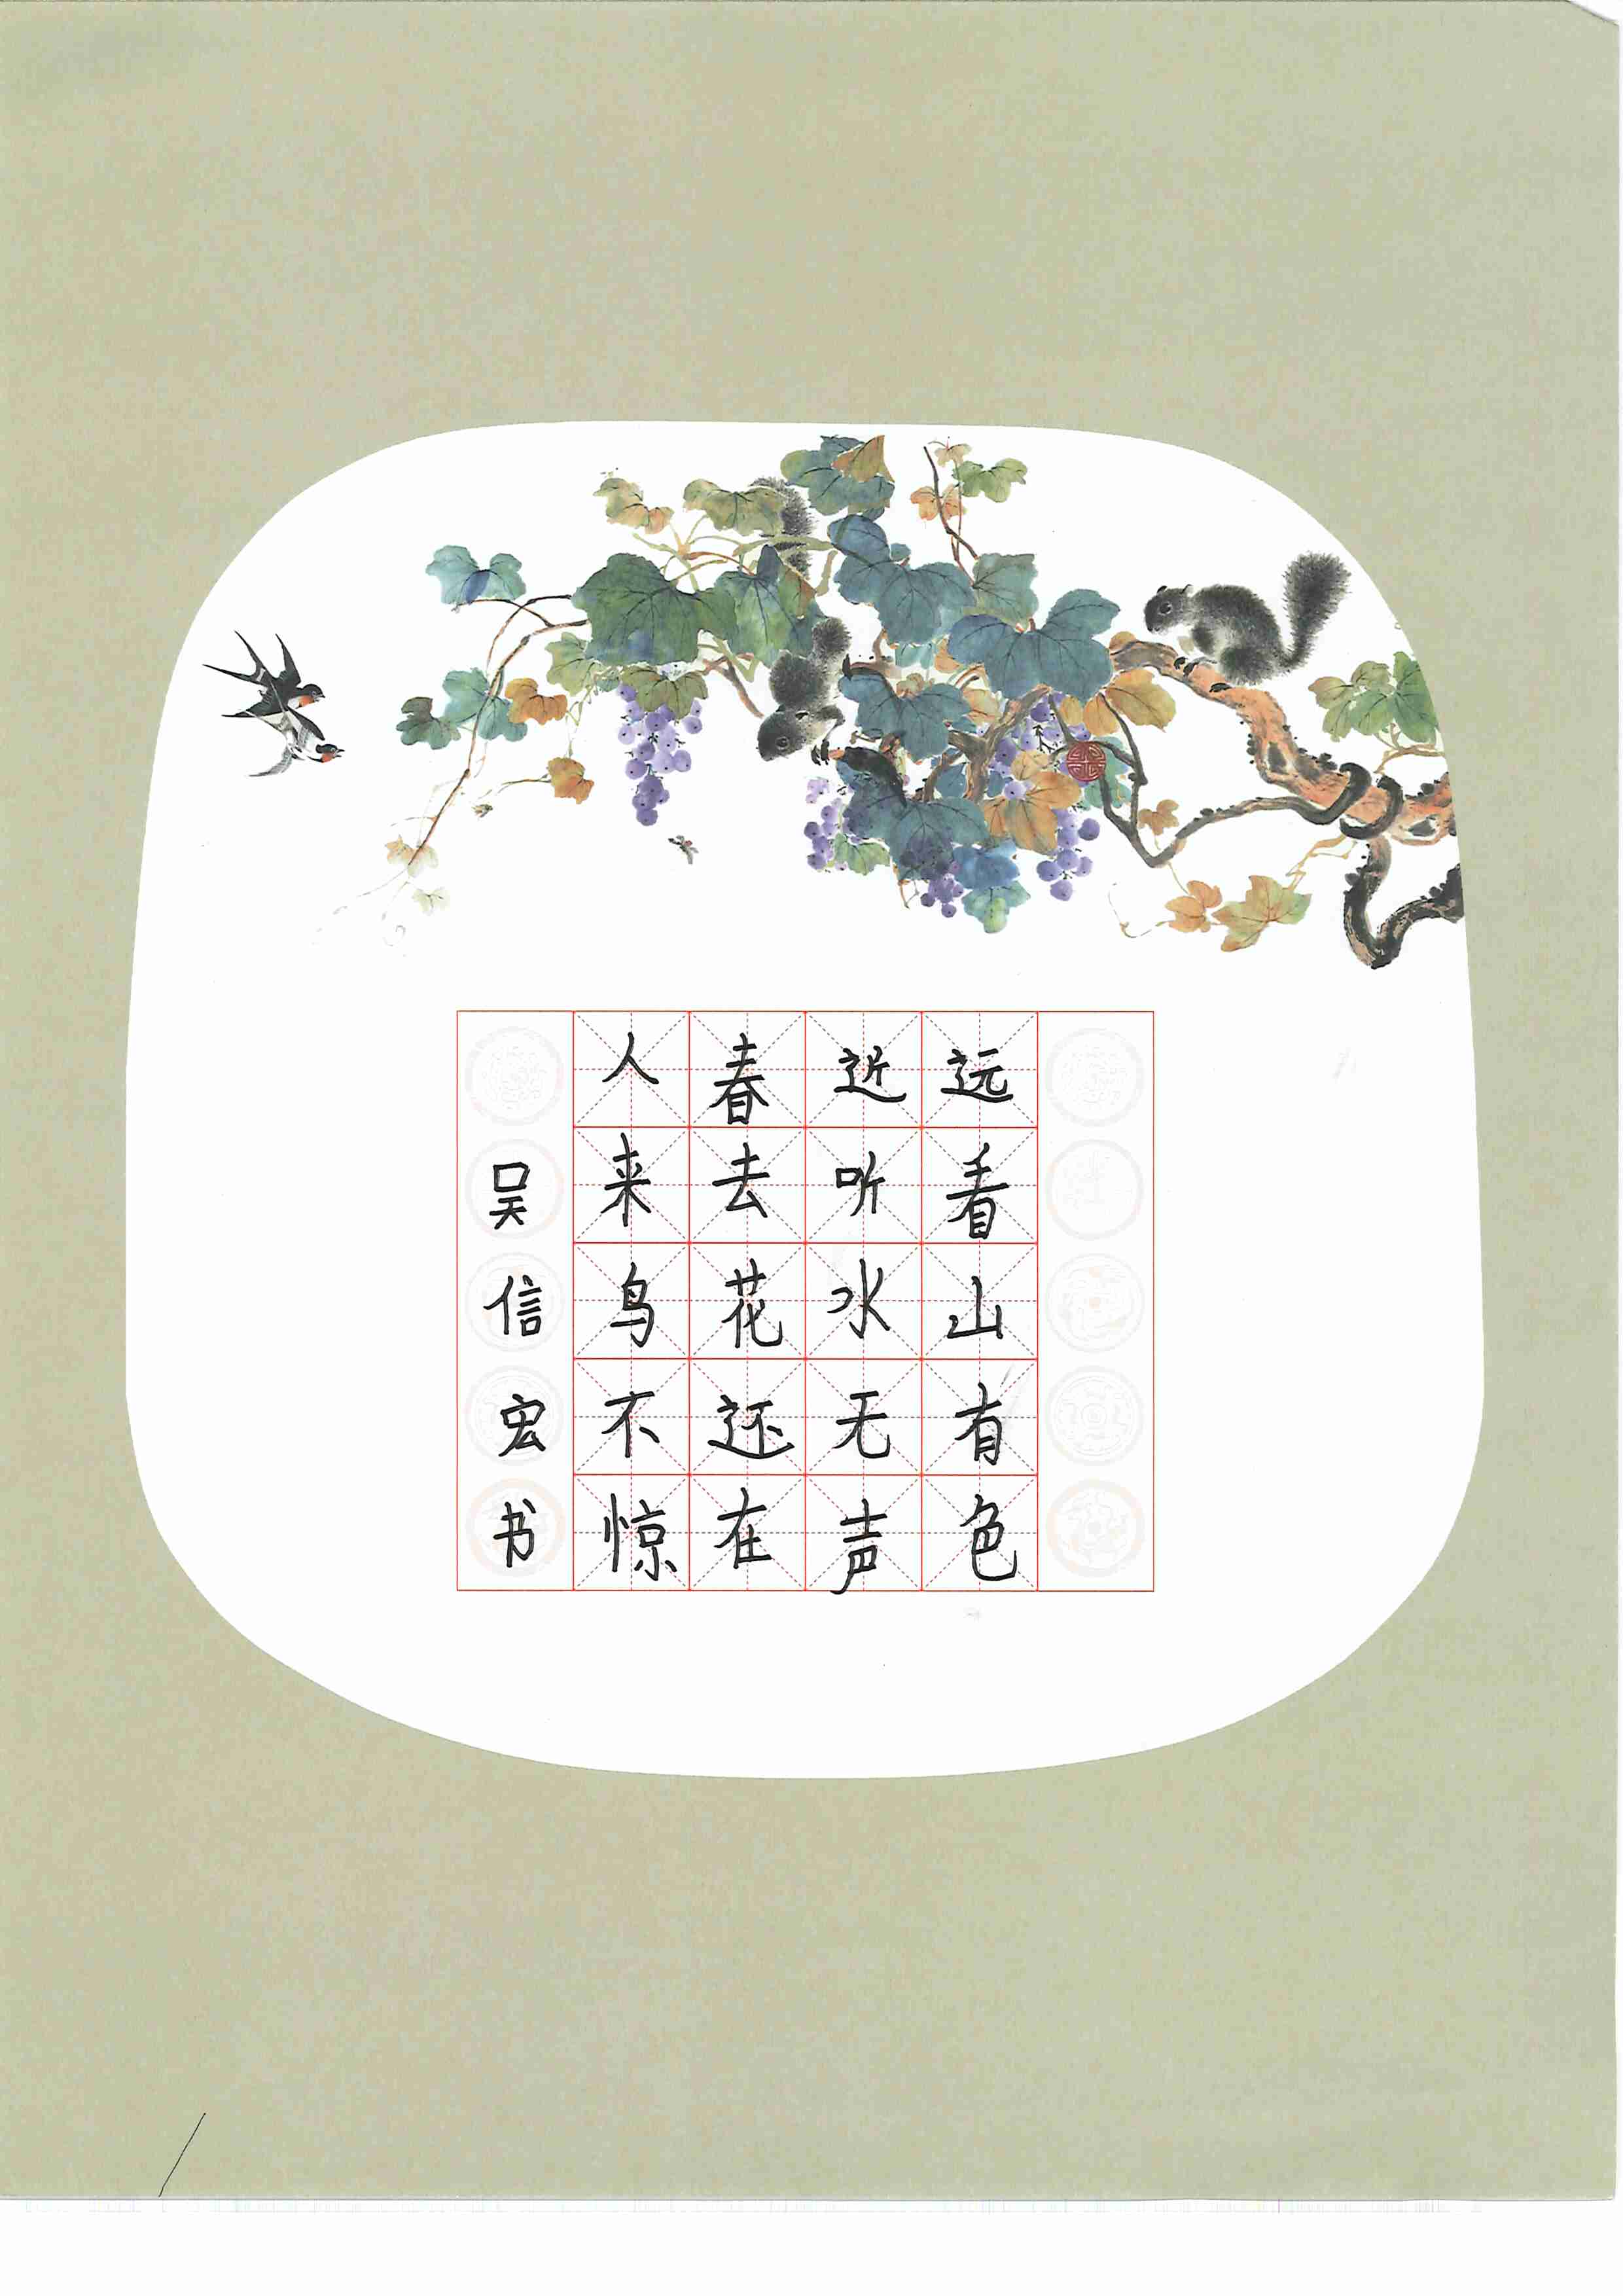 远看山有色
近听水无声
春去花还在
人来鸟不惊
吴信宏书